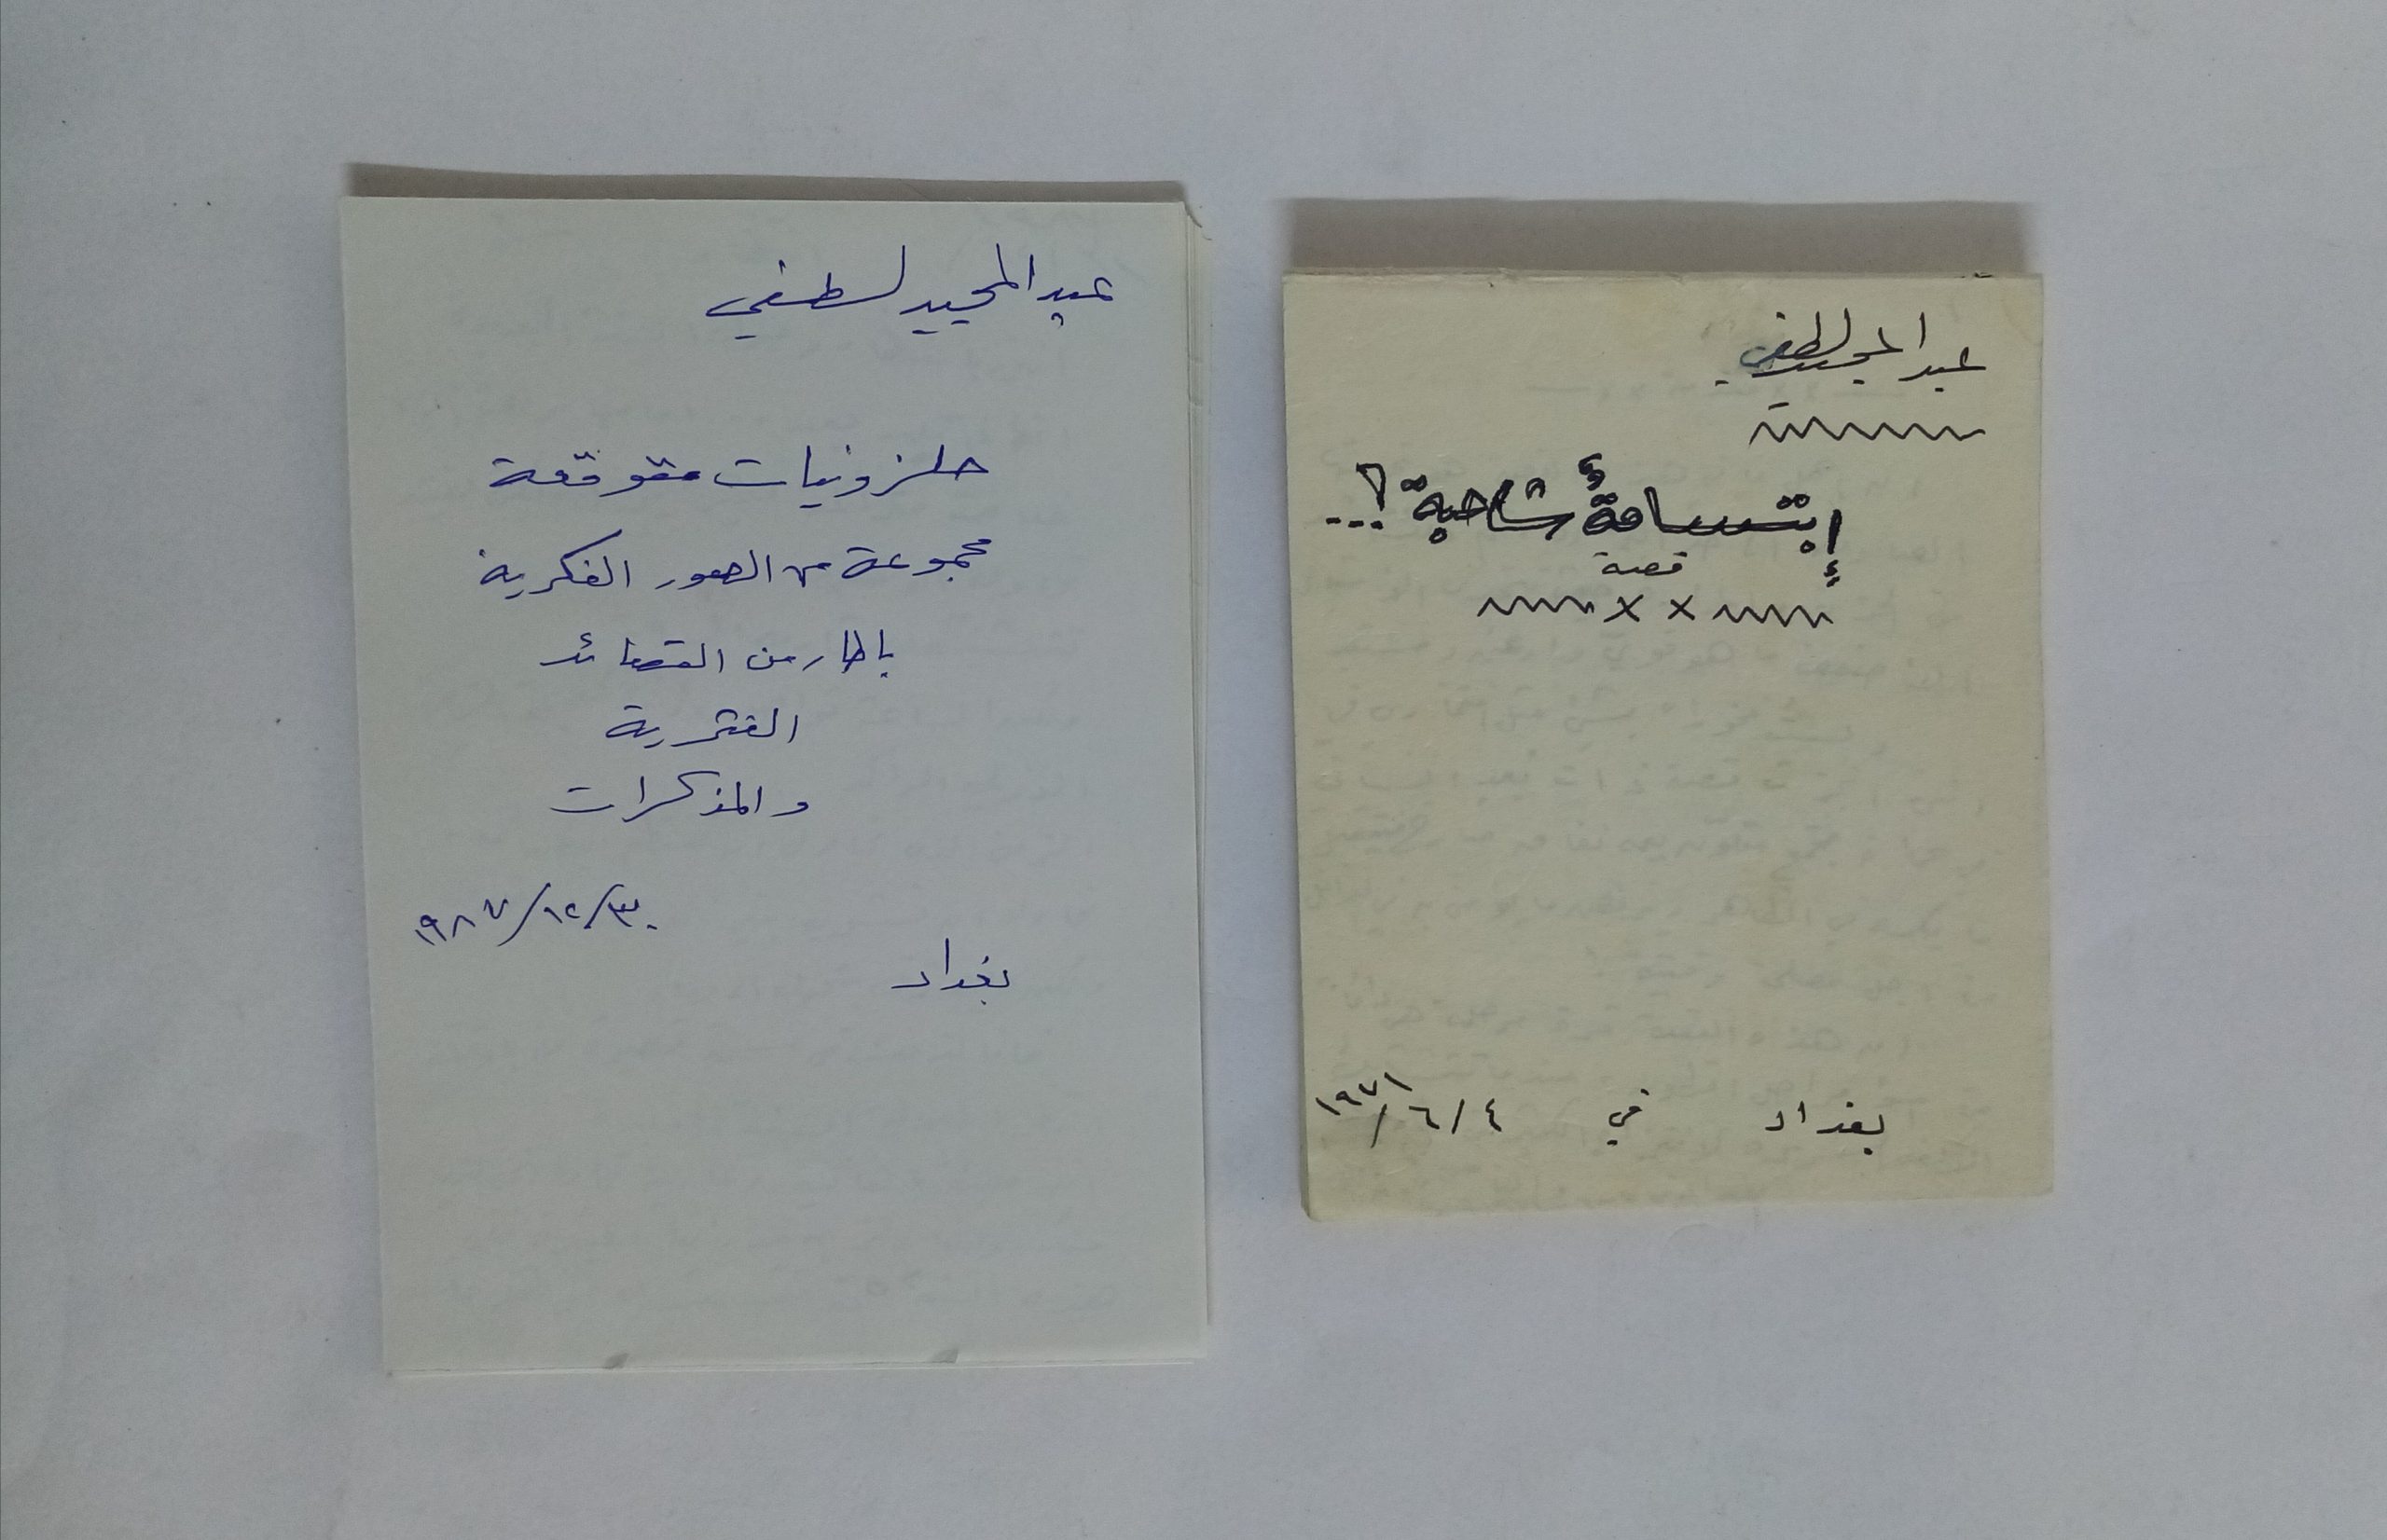 عبد المجيد لطفي
إبتسامةٌ شاحبة!...
قصة
بغداد في ٤/٦/١٩٧١
عبد المجيد لطفي
حلزونيات متقوقعة
مجموعة من الصور الفكرية
باطار من القصائد
النثرية
والمذكرات
١٩٨٧/١٢/٣٠
بغداد